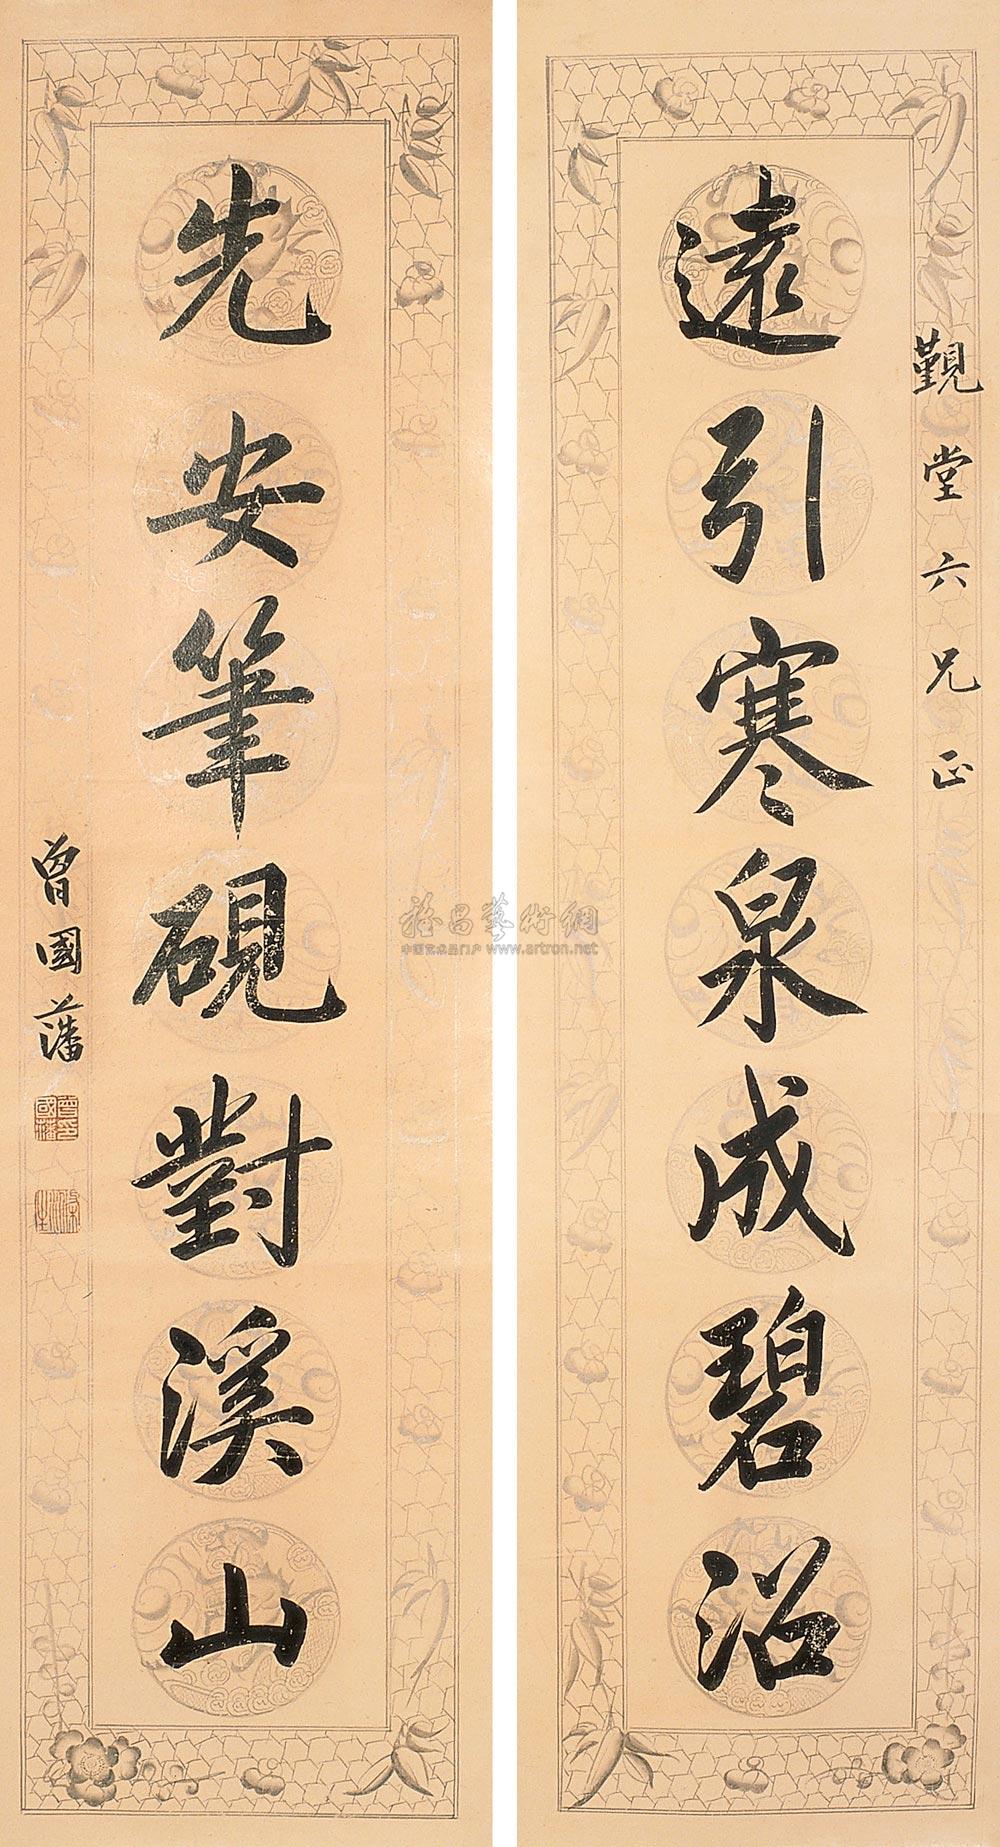 覲堂六兄正
遠引寒泉成碧沼
先安筆硯對溪山
曾國藩
曾印國藩
雅昌藝術網
中国艺术品门户 www.artron.net